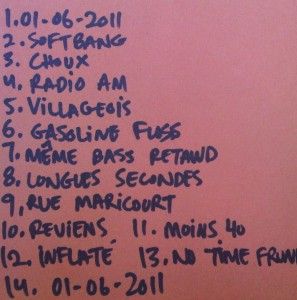 1. 01-06-2011
2. SOFTBANG
3. CHOUX
4. RADIO AM
5. VILLAGEOIS
6. GASOLINE FUSS
7. MÊME BASS RETAWD
8. LONGUES SECONDES
9. RUE MARICOURT
10. REVIENS 11. MOINS 40
12. INFLATE 13. NO TIME FRUNK
14. 01-06-2011